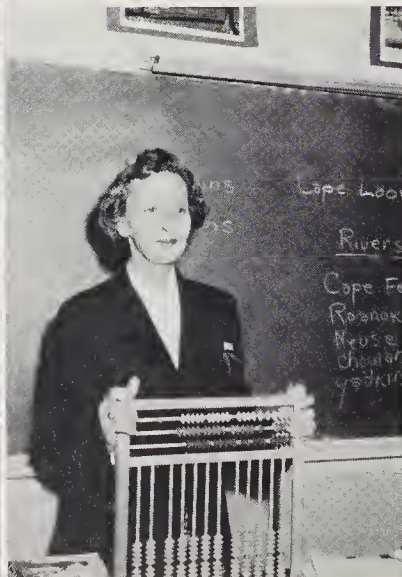 ns
Cape Loo
ns
Rivers
Cape Fe
Roanok
Neuse
chowan
yadkin